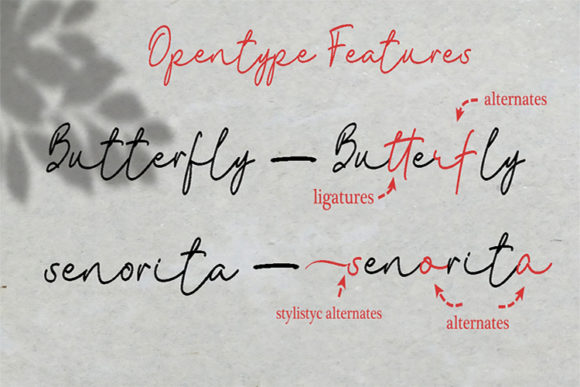 Opentype Features
alternates
Butterfly — Butterfly
ligatures
senorita — senorita
stylistyc alternates
alternates